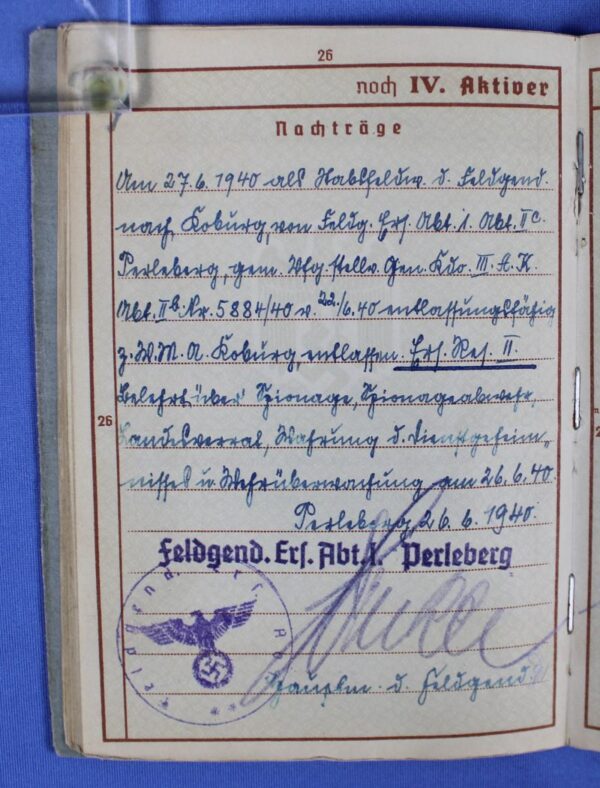 26
noch IV. Aktiver
Nachträge
Am 27.6.1940 als Stabsfeldw. d. Feldgend.
nach Koburg, von Feldg. Ers. Abt. 1. Abt. IIc
Perleberg, gem. Vfg. stellv. Gen. Kdo. III. A. K.
Abt. IIb. Nr. 5884/40 v. 22./6.40 entlassungsfähig
z. W. M. A. Koburg, entlassen. Ers. Res. II.
Belehrt über Spionage, Spionageabwehr,
26
Landesverrat, Wahrung d. Dienstgeheim„
nisses u. Wehrüberwachung am 26.6.40.
Perleberg 26.6.1940.
Feldgend. Ers. Abt. 1. Perleberg
Hauptm. d. Feldgend.